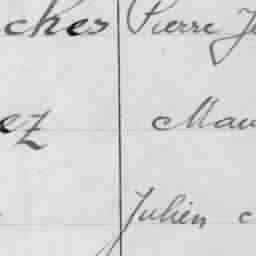 ches Pierre J
ez Mau
Julien